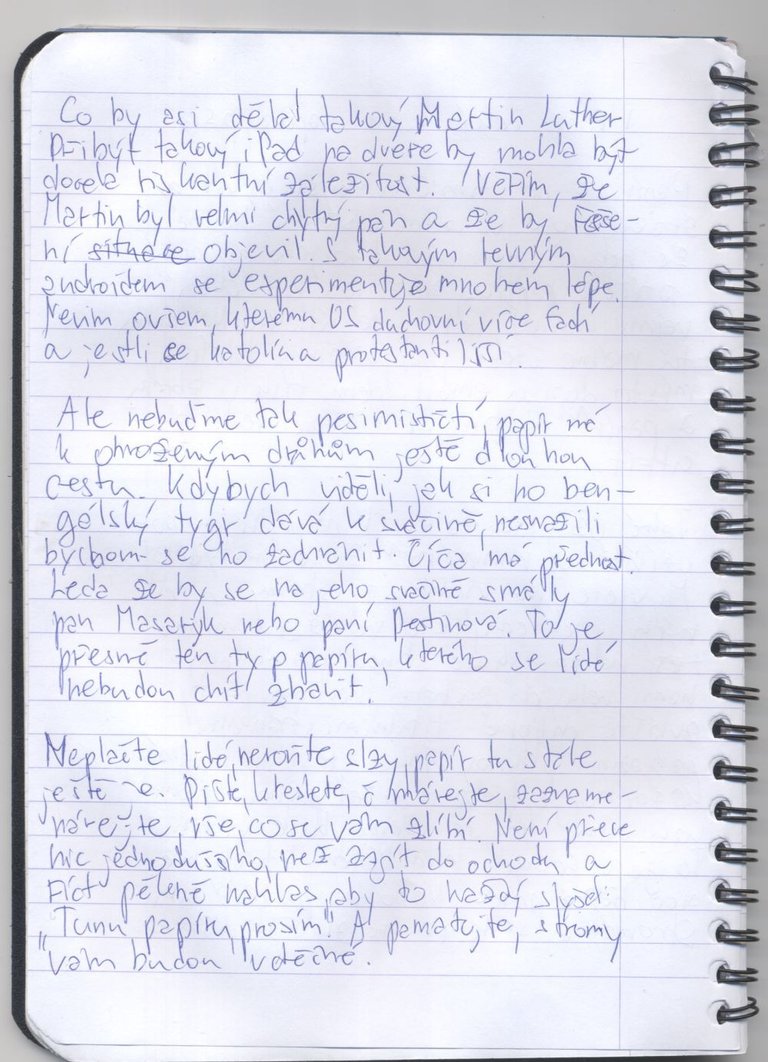 Co by asi dělal takový Martin Luther
Přibýt takový iPad na dveře by mohla být
docela riskantní záležitost. Věřím, že
Martin byl velmi chytrý pán a že by řeše-
ní situace objevil. S takovým levným
androidem se experimentuje mnohem lépe.
Nevím ovšem, kterému OS duchovní více fandí
a jestli se katolíci a protestanti liší.
Ale nebuďme tak pesimističtí, papír má
k ohroženým druhům ještě dlouhou
cestu. Kdybych viděli, jak si ho ben-
gálský tygr dává k svačině, nesnažili
bychom se ho zachránit. Číča má přednost.
Leda že by se na jeho svačině smály
pan Masaryk nebo paní Destinová. To je
přesně ten typ papíru, kterého se lidé
nebudou chtít zbavit.
Neplačte lidé, neroňte slzy, papír tu stále
ještě je. Pište, kreslete, čmárejte, zazname-
návejte, vše, co se vám zlíbí. Není přece
nic jednoduššího, než zajít do ochodu a
říct pěkně nahlas, aby to každý slyšel:
"Tunu papíru, prosím!" A pamatujte, stromy
vám budou vděčné.